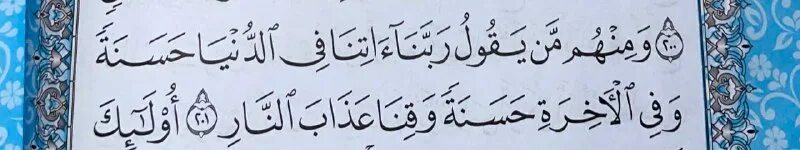 ٢٠٠ وَمِنْهُم مَّن يَقُولُ رَبَّنَآ ءَاتِنَا فِي الدُّنْيَا حَسَنَةً
وَفِي الْأَخِرَةِ حَسَنَةً وَقِنَا عَذَابَ النَّارِ ٢٠١ أُوْلَٰٓئِكَ